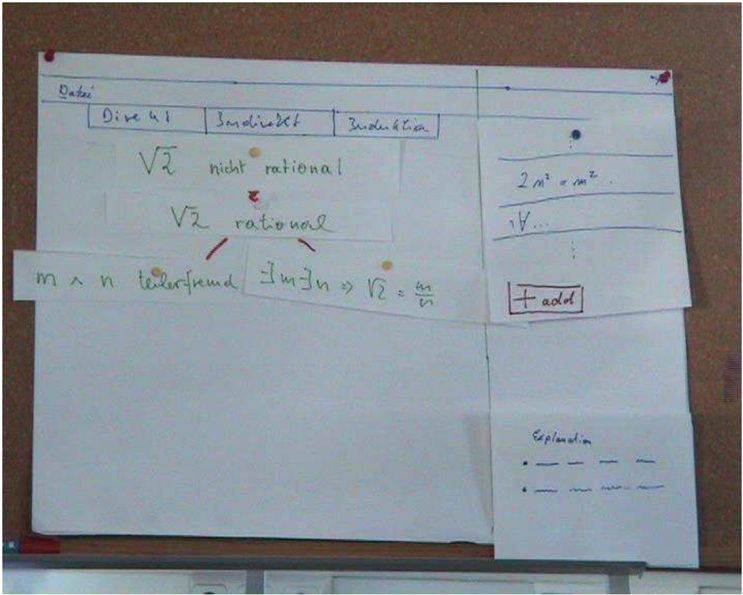 Datei
Direkt Indirekt Induktion
√2 nicht rational
√2 rational
m ∧ n teilerfremd
∃m∃n ⇒ √2 = m/n
2n² = m².
∀...
+ add
Explanation